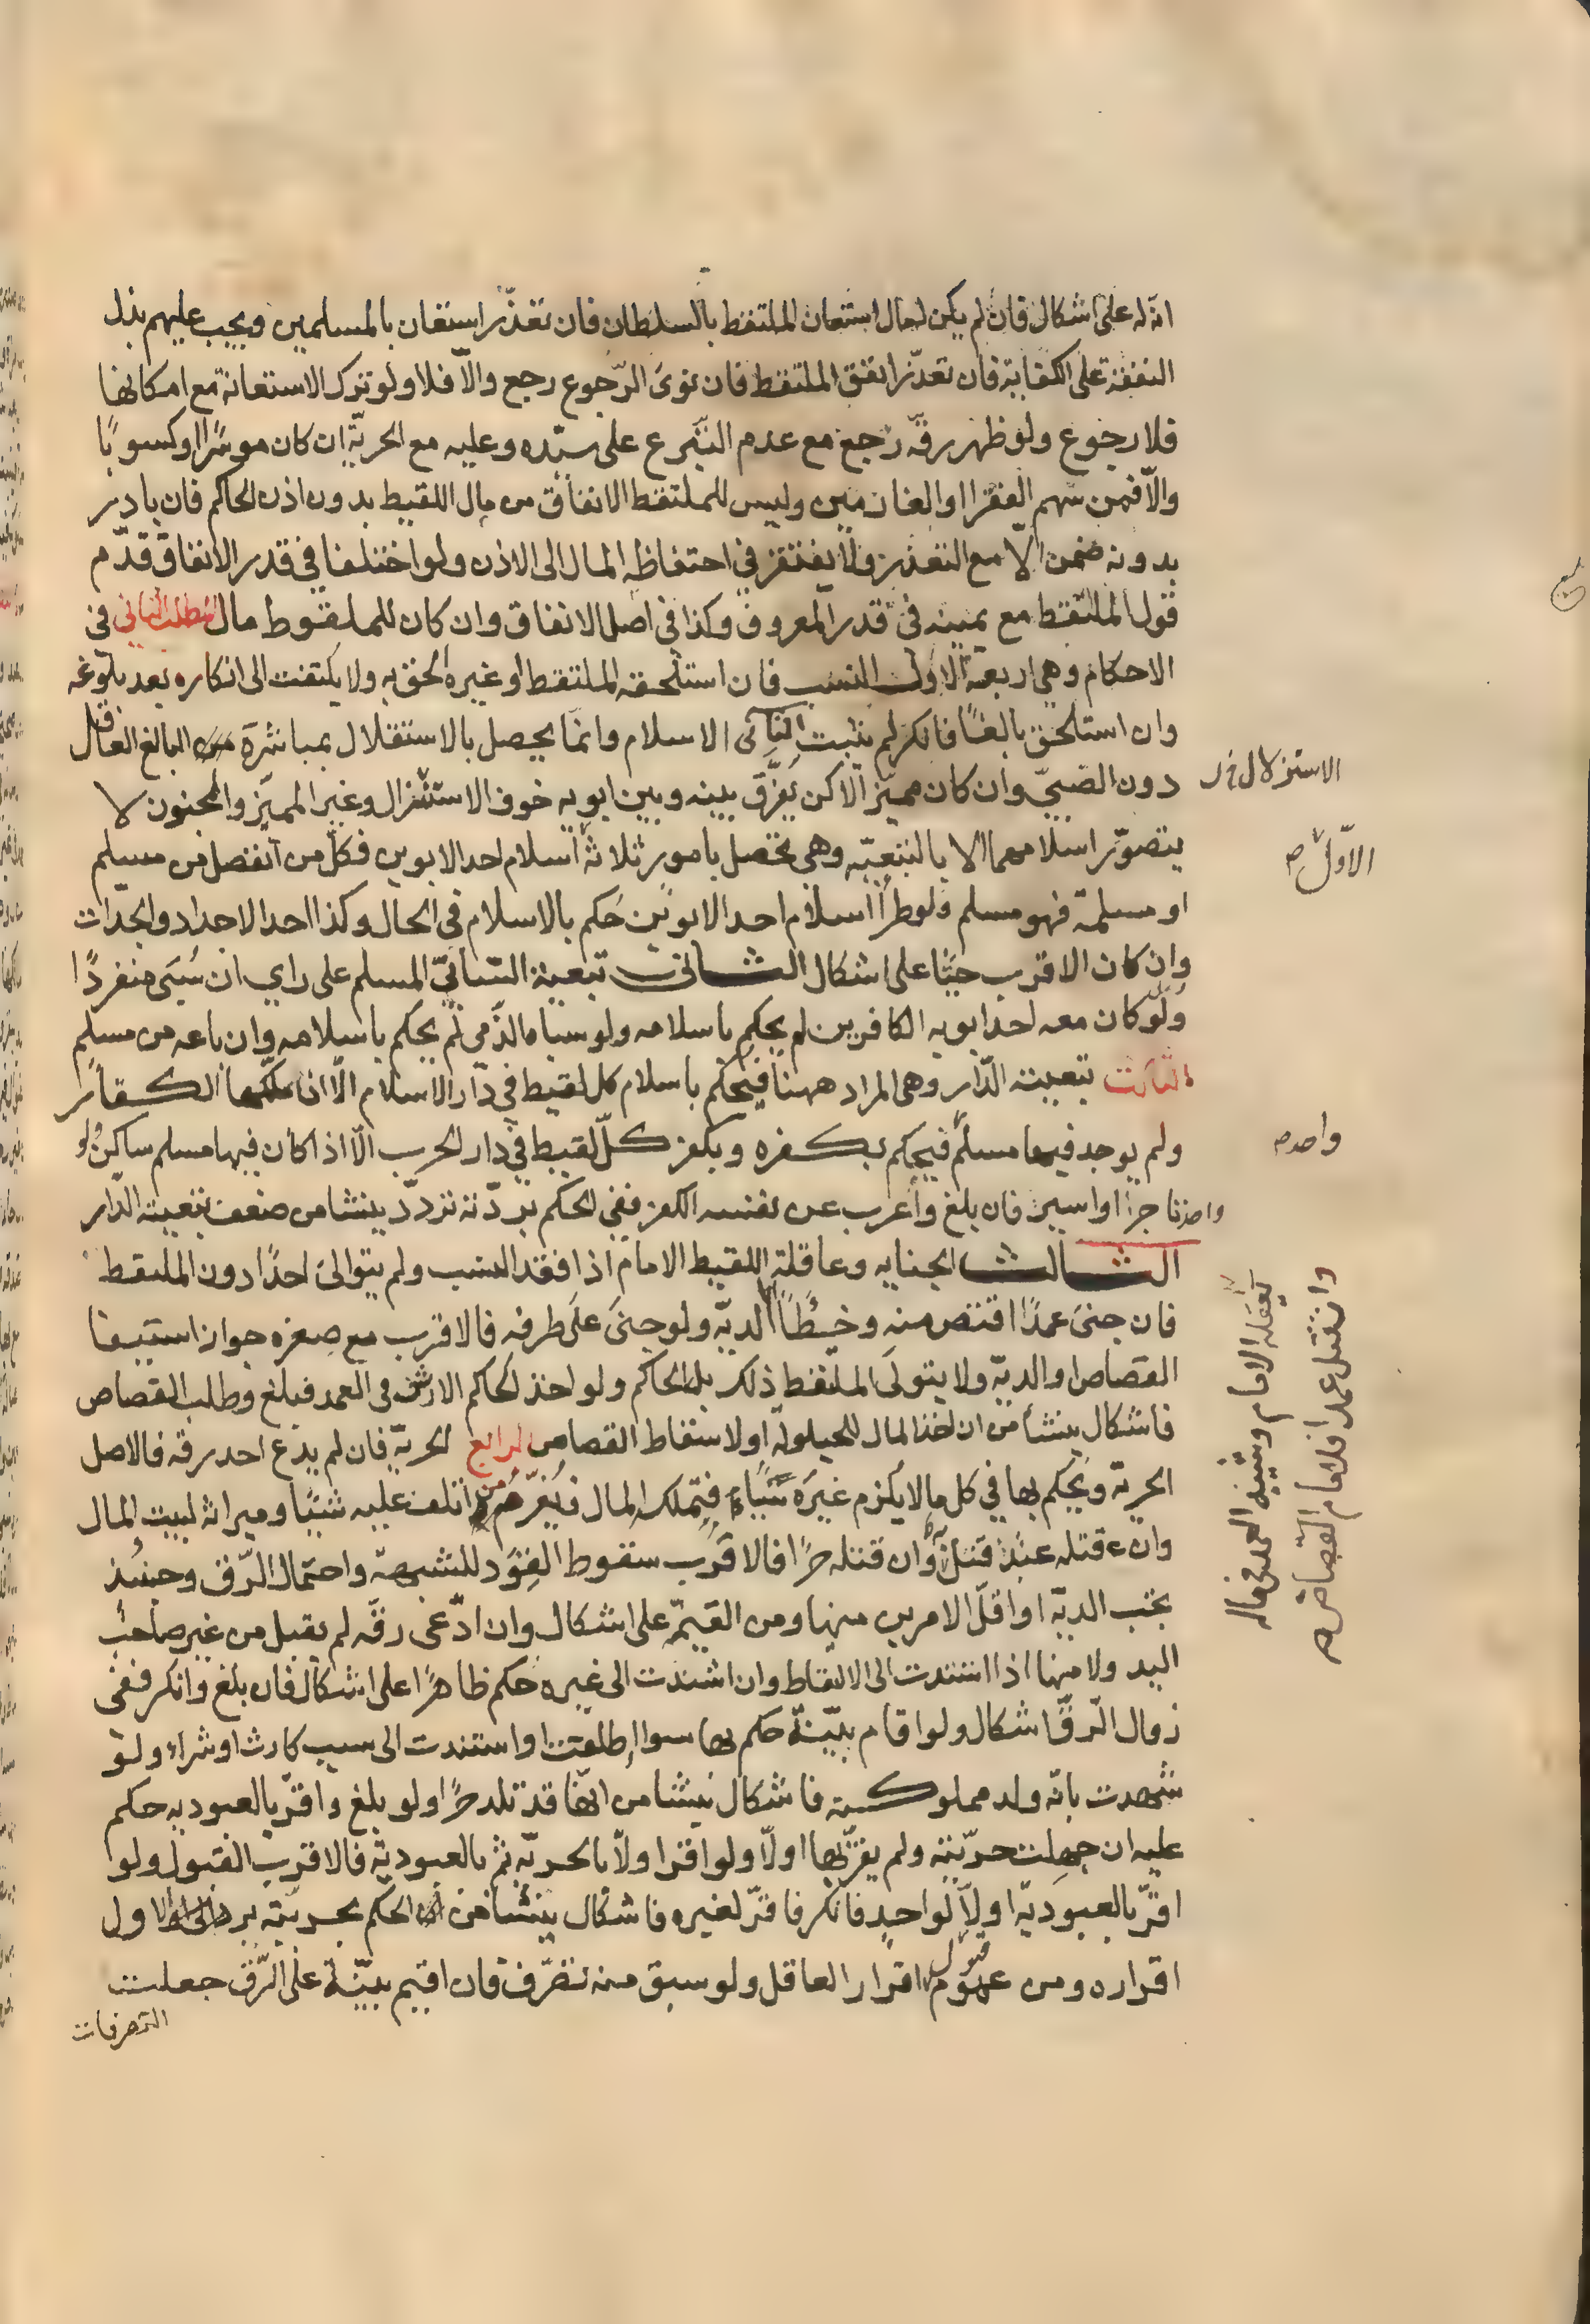 انه له على اشكال فان لم يكن له مال استعان الملتقط بالسلطان فان تعذّر استعان بالمسلمين ويجب عليهم بذل
النفقة على الكفاية فان تعذّر انفق الملتقط فان نوى الرّجوع رجع والّا فلا ولو ترك الاستعانة مع امكانها
فلا رجوع ولو ظهر رقّه رجع مع عدم التبرع على سيّده وعليه مع الحريّة ان كان موسرًا او كسوبًا
والّا فمن سهم الفقرا او الغارمين وليس للملتقط الانفاق من مال اللقيط بدون اذن الحاكم فان بادر
بدونه ضمن الا مع التعذر ولا يفتقر في احتفاظه المال الى الاذن ولو اختلفا في قدر الانفاق قدّم
قول الملتقط مع يمينه في قدر المعروف وكذا في اصل الانفاق وان كان للملقوط مال المطلب الثاني في
الاحكام وهي اربعة الاول النسب فان استلحقه الملتقط او غيره الحق به ولا يلتفت الى انكاره بعد بلوغه
وان استلحق بالغًا فانكر لم يثبت الثاني الاسلام وانما يحصل بالاستقلال بمباشرة البالغ العاقل
دون الصبيّ وان كان مميّزا لكن يُفرَّق بينه وبين ابويه خوف الاستنزال وغير المميّز والمجنون لا
الاستزلال خ ل
يتصوّر اسلامهما الا بالتبعيّه وهي تحصل بامور ثلاثة اسلام احد الابوين فكل من انفصل من مسلم
الاوّل صح
او مسلمة فهو مسلم ولو طرأ اسلام احد الابوين حكم بالاسلام في الحال وكذا احد الاجداد والجدّات
وان كان الاقرب حيًّا على اشكال الثاني تبعية السّابيّ المسلم على راي ان سُبي منفردًا
ولو كان معه احد ابويه الكافرين لم يحكم باسلامه ولو سباه الذّمي لم يحكم باسلامه وان باعه من مسلم
الثالث تبعية الدّار وهي المراد ههنا فيحكم باسلام كل لقيط في دار الاسلام الّا ان ملكها الكفار
ولم يوجد فيها مسلم فيحكم بكفره وبكفر كلّ لقيط في دار الحرب الّا اذا كان فيها مسلم ساكن ولو
واحد صح
واحد تاجرا او اسير فان بلغ واعرب عن نفسه الكفر ففي الحكم بردّته تردّد ينشا من ضعف تبعية الدّار
الثالث الجنايه وعاقلة اللقيط الامام اذا فقد النسب ولم يتوالى احدًا دون الملتقط
فان جنى عمدًا اقتص منه وخطًأ الديّه ولو جنى على طرفه فالاقرب مع صغره جواز استيفا
يعقله الامام وشبيه العمد في ماله
وان قتل عمدا فللامام القصاص صح
القصاص او الديّه ولا يتولى الملتقط ذلك بل الحاكم ولو اخذ الحاكم الارش في العمد فبلغ وطلب القصاص
فاشكال ينشأ من ان اخذ المال للحيلولة او لاسقاط القصاص الرابع الحريّه فان لم يدّع احد رقه فالاصل
الحريّه ويحكم بها في كل ما لا يلزم غيره شيًا فتملك المال فيُغرّم من اتلف عليه شيئًا وميراثه لبيت المال
وان قتله عبد قتل به وان قتله حرًا فالاقرب سقوط القود للشبهة واحتمال الرّق وحينئذ
تجب الديّه او اقلّ الامرين منها ومن القيمّة على اشكال وان ادّعى رقّه لم يقبل من غير صاحب
اليد ولا منها اذا استندت الى الالتقاط وان استندت الى غيره حكم ظاهرًا على اشكال فان بلغ وانكر ففي
زوال الرّق اشكال ولو اقام بيّنة حكم بها سوا اطلقت او استندت الى سبب كارث او شراء ولو
شهدت بانّه ولد مملوكته فاشكال ينشا من انّها قد تلد حرًا ولو بلغ واقرّ بالعبوديه حكم
عليه ان جهلت حرّيته ولم يقرّ بها اولًا ولو اقرا ولًا بالحريّه ثم بالعبوديّة فالاقرب القبول ولو
اقرّ بالعبوديّه اولًا لواحدٍ فانكر فاقرّ لغيره فاشكال ينشا من الحكم بحريّته برد الاول
اقراره ومن عموم قبول اقرار العاقل ولو سبق منه تصرّف فان اقيم بيّنة على الرّق جعلت
التصرفات